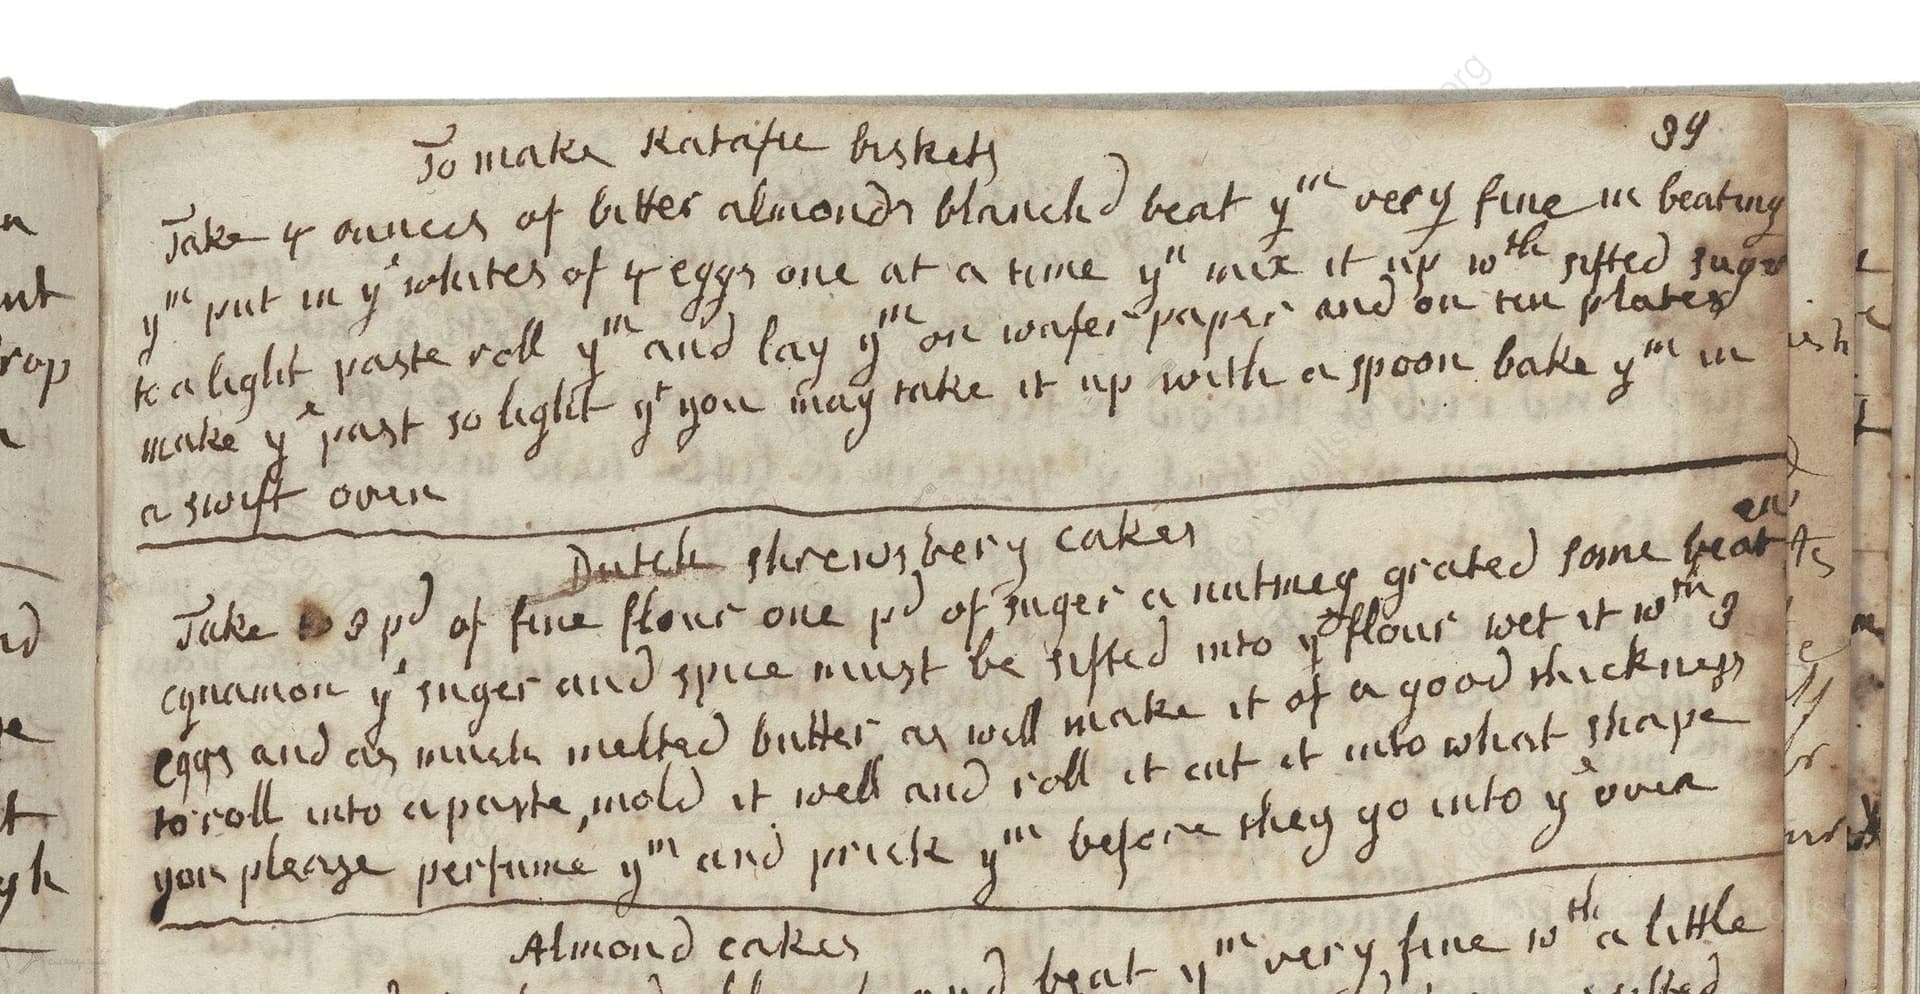 39
To make Ratafie biskets
Take 4 ounces of bitter almonds blanchd beat ym very fine in beating
ym put in ye whites of 4 eggs one at a time yn mix it up wth sifted suger
to a light paste roll ym and lay ym on wafer paper and on tin plates
make ye past so light yt you may take it up with a spoon bake ym in
a swift oven
Dutch shrewsbery cakes
Take 3 pd of fine flour one pd of suger a nutmeg grated some beaten
cynamon ye suger and spice must be sifted into ye flour wet it wth 3
eggs and as much melted butter as will make it of a good thickness
to roll into a paste, mold it well and roll it cut it into what shape
you please perfume ym and prick ym before they go into ye oven
Almond cakes
and beat ym very fine wth a little
sifted